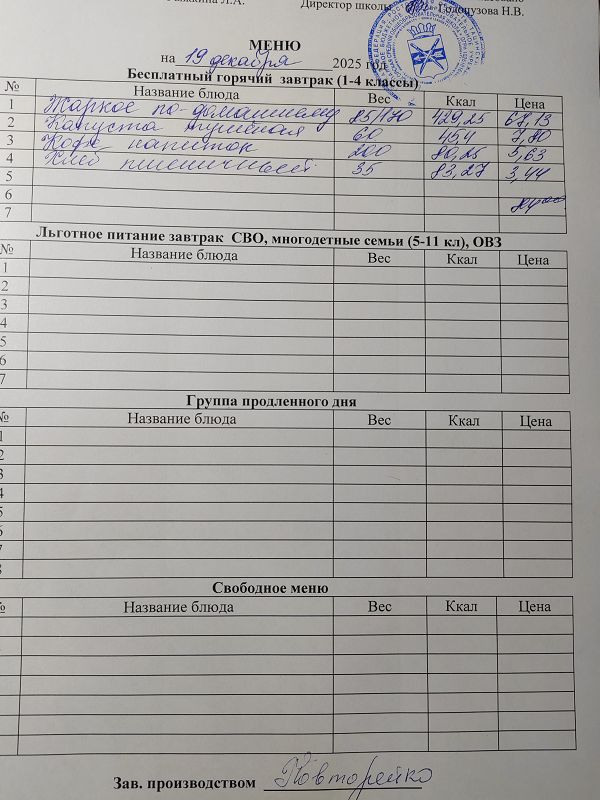 Л.А.
Директор школы Голочузова Н.В.
МЕНЮ
на 19 декабря 2025 год
Бесплатный горячий завтрак (1-4 классы)
№ Название блюда Вес Ккал Цена
1 Жаркое по-домашнему 85/170 429,25 68,13
2 Капуста тушеная 60 45,4 7,80
3 Кофе напиток 200 86,25 5,63
4 Хлеб пшеничный 35 83,27 3,44
5
6
7
Льготное питание завтрак СВО, многодетные семьи (5-11 кл), ОВЗ
№ Название блюда Вес Ккал Цена
1
2
3
4
5
6
7
Группа продленного дня
№ Название блюда Вес Ккал Цена
1
2
3
4
5
6
7
8
Свободное меню
№ Название блюда Вес Ккал Цена
Зав. производством